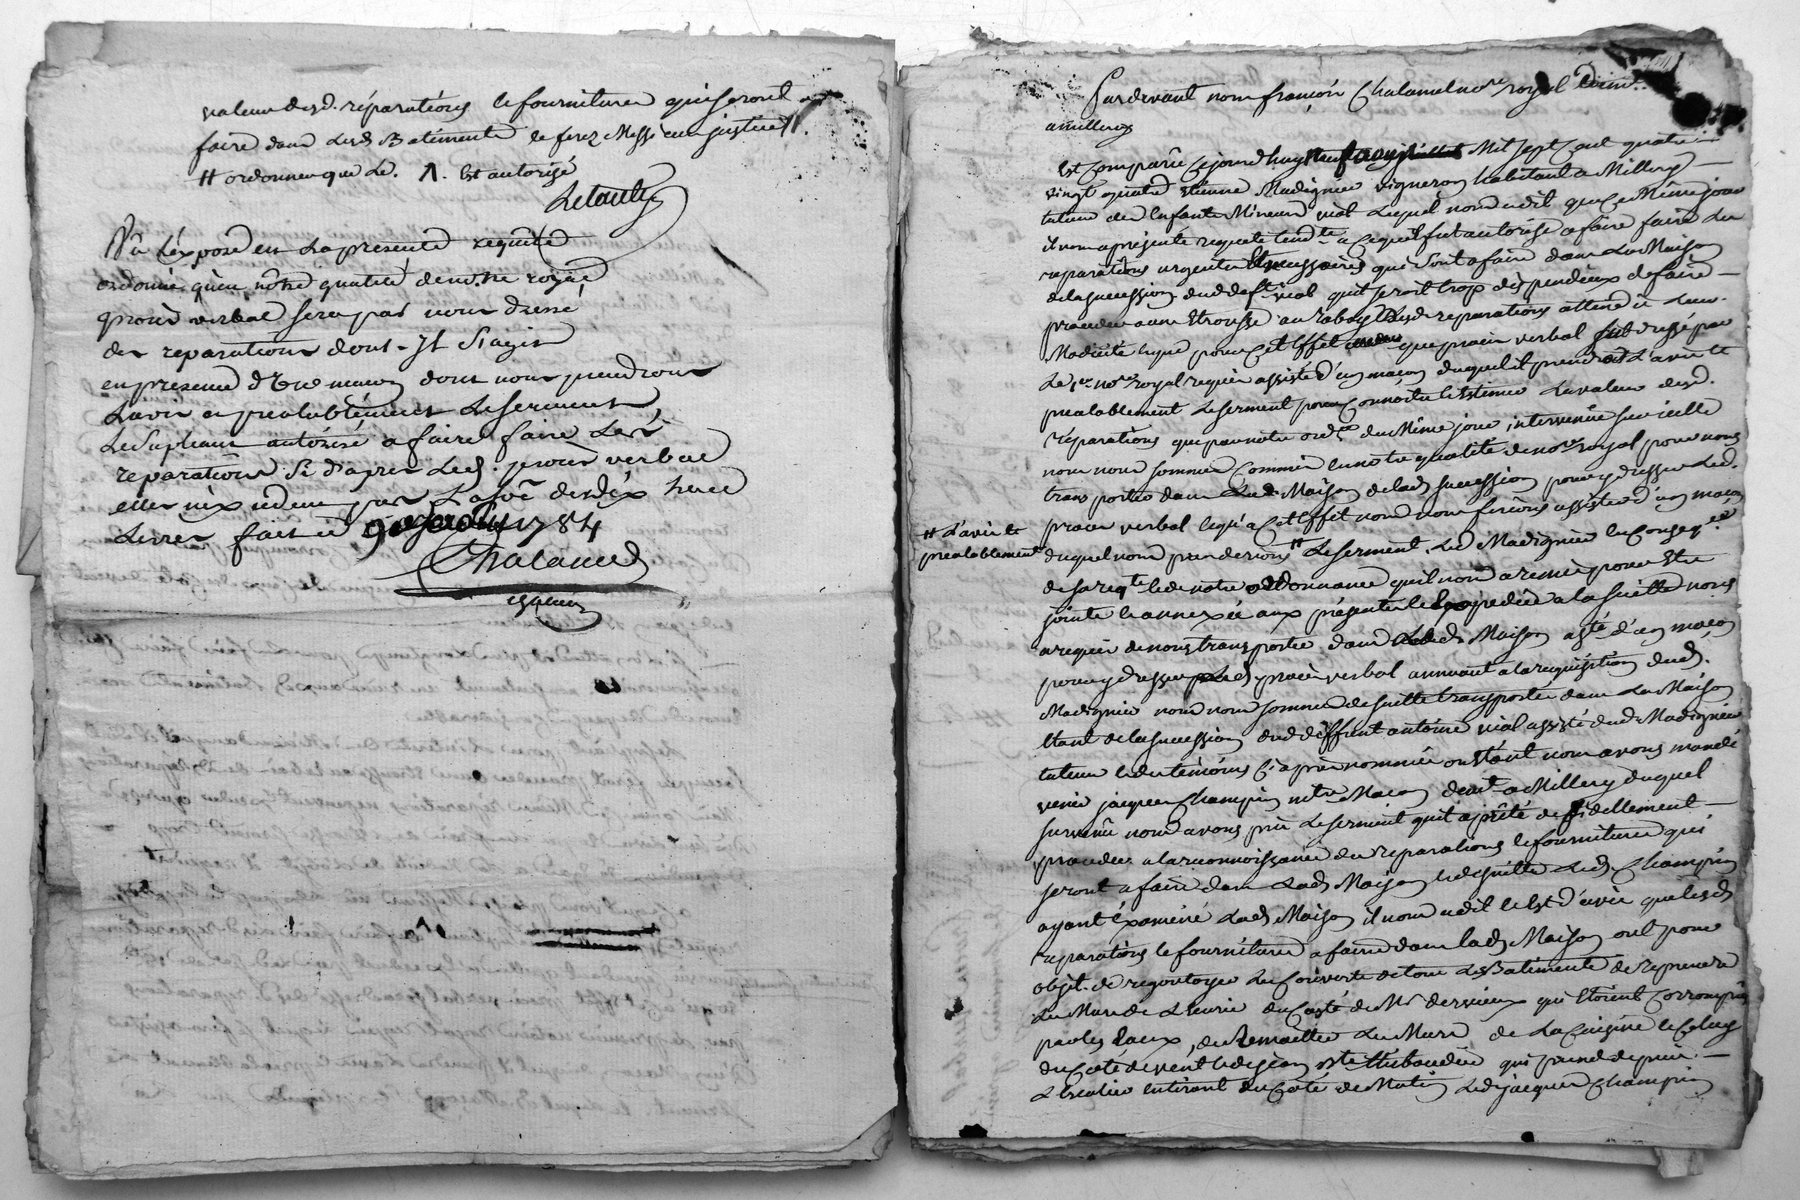 valeur desd. réparations et fournitures qui seront a
faire dans lesd. Batiments et ferez Messieurs justice
# ordonner que le. Λ. est autorisé
Vû L'éxposé en La presente requete
ordonné qu'en nôtre qualité de no.re royal
procès verbal sera par nous dressé
des reparations dont Il S'agit
en presence d'Un macon dont nous prendrons
L'avis et prealablement Le serment
Le Supliant autorisé a faire faire Lesd.
reparations Si d'apres Led. procès verbal
elles n'excedent pas La so.e de dix huit
Livres fait ce 9 1784
Chalamel
Pardevant nous françois Chalamel no.re royal
a millery
Est Comparû Cejourd'huy Mil Sept Cent quatre
vingt quatre etienne Madignier vigneron habitant a Millery
tuteur des Enfants Mineurs vial Lequel nous a dit que Ce Même jour
il nous a présenté requete tend.te a Ce qu'il fut autorisé a faire faire Les
reparations urgentes et necessaires qui Sont a faire dans La Maison
de la succession dud. deft. vial qu'il Seroit trop dispendieux de faire
proceder a une Etrousse au rabay desd. reparations attendû Leur
Modicité et que pour Cet Effet que procès verbal fut dressé par
Le 1.er no.re royal requis assisté d'un maçon duquel il prendroit L'avis et
prealablement Le serment pour Connoitre et Estimer La valeur desd.
réparations que par notre ord.ce du Même jour intervenue sur icelle
nous nous sommes Commis en notre qualité de no.re royal pour nous
transporter dans Lad. Maison de lad. succession pour y dresser Led.
procès verbal et qu'a Cet Effet nous nous ferions assister d'un maçon
# L'avis et
prealablement
duquel nous prendrions # Le serment. Led. Madignier en Conseq.ce
de sa req.te et de notre ordonnance qu'il nous a remis pour Etre
jointe et annexée aux présentes et expediée a la suitte nous
a requis de nous transporter dans Lad. Maison asté d'un maçon
pour y dresser Led. procès verbal avenant a la requisition dud.
Madignier nous nous sommes de suitte transportés dans La Maison
Etant de la succession dud. deffunt antoine vial assisté dud. Madignier
tuteur et des témoins Ci après nommés ou Etant nous avons mandé
venir jacques Champin m.tre Maçon dem.t a Millery duquel
survenû nous avons pris Le serment qu'il a prêté de fidellement
proceder a la reconnoissance des reparations et fournitures qui
seront a faire dans Lad. Maison et de suitte Led. Champin
ayant éxaminé Lad. Maison il nous a dit et Est d'avis que lesd.
reparations et fournitures a faire dans lad. Maison ont pour
objet de regouttoyer Les Couverts de tous Les Batiments de reprendre
Le Mur de L'ecurie du Costé de M.r dervieux qui Etoient Corrompûs
par les Eaux, de Remailler Les Murs de La Cuisine et Celuy
du Côté de vent et de jean B.te thibaudier qui prend depuis
L'Escalier entirant du Côté de Matin Led. jacques Champin